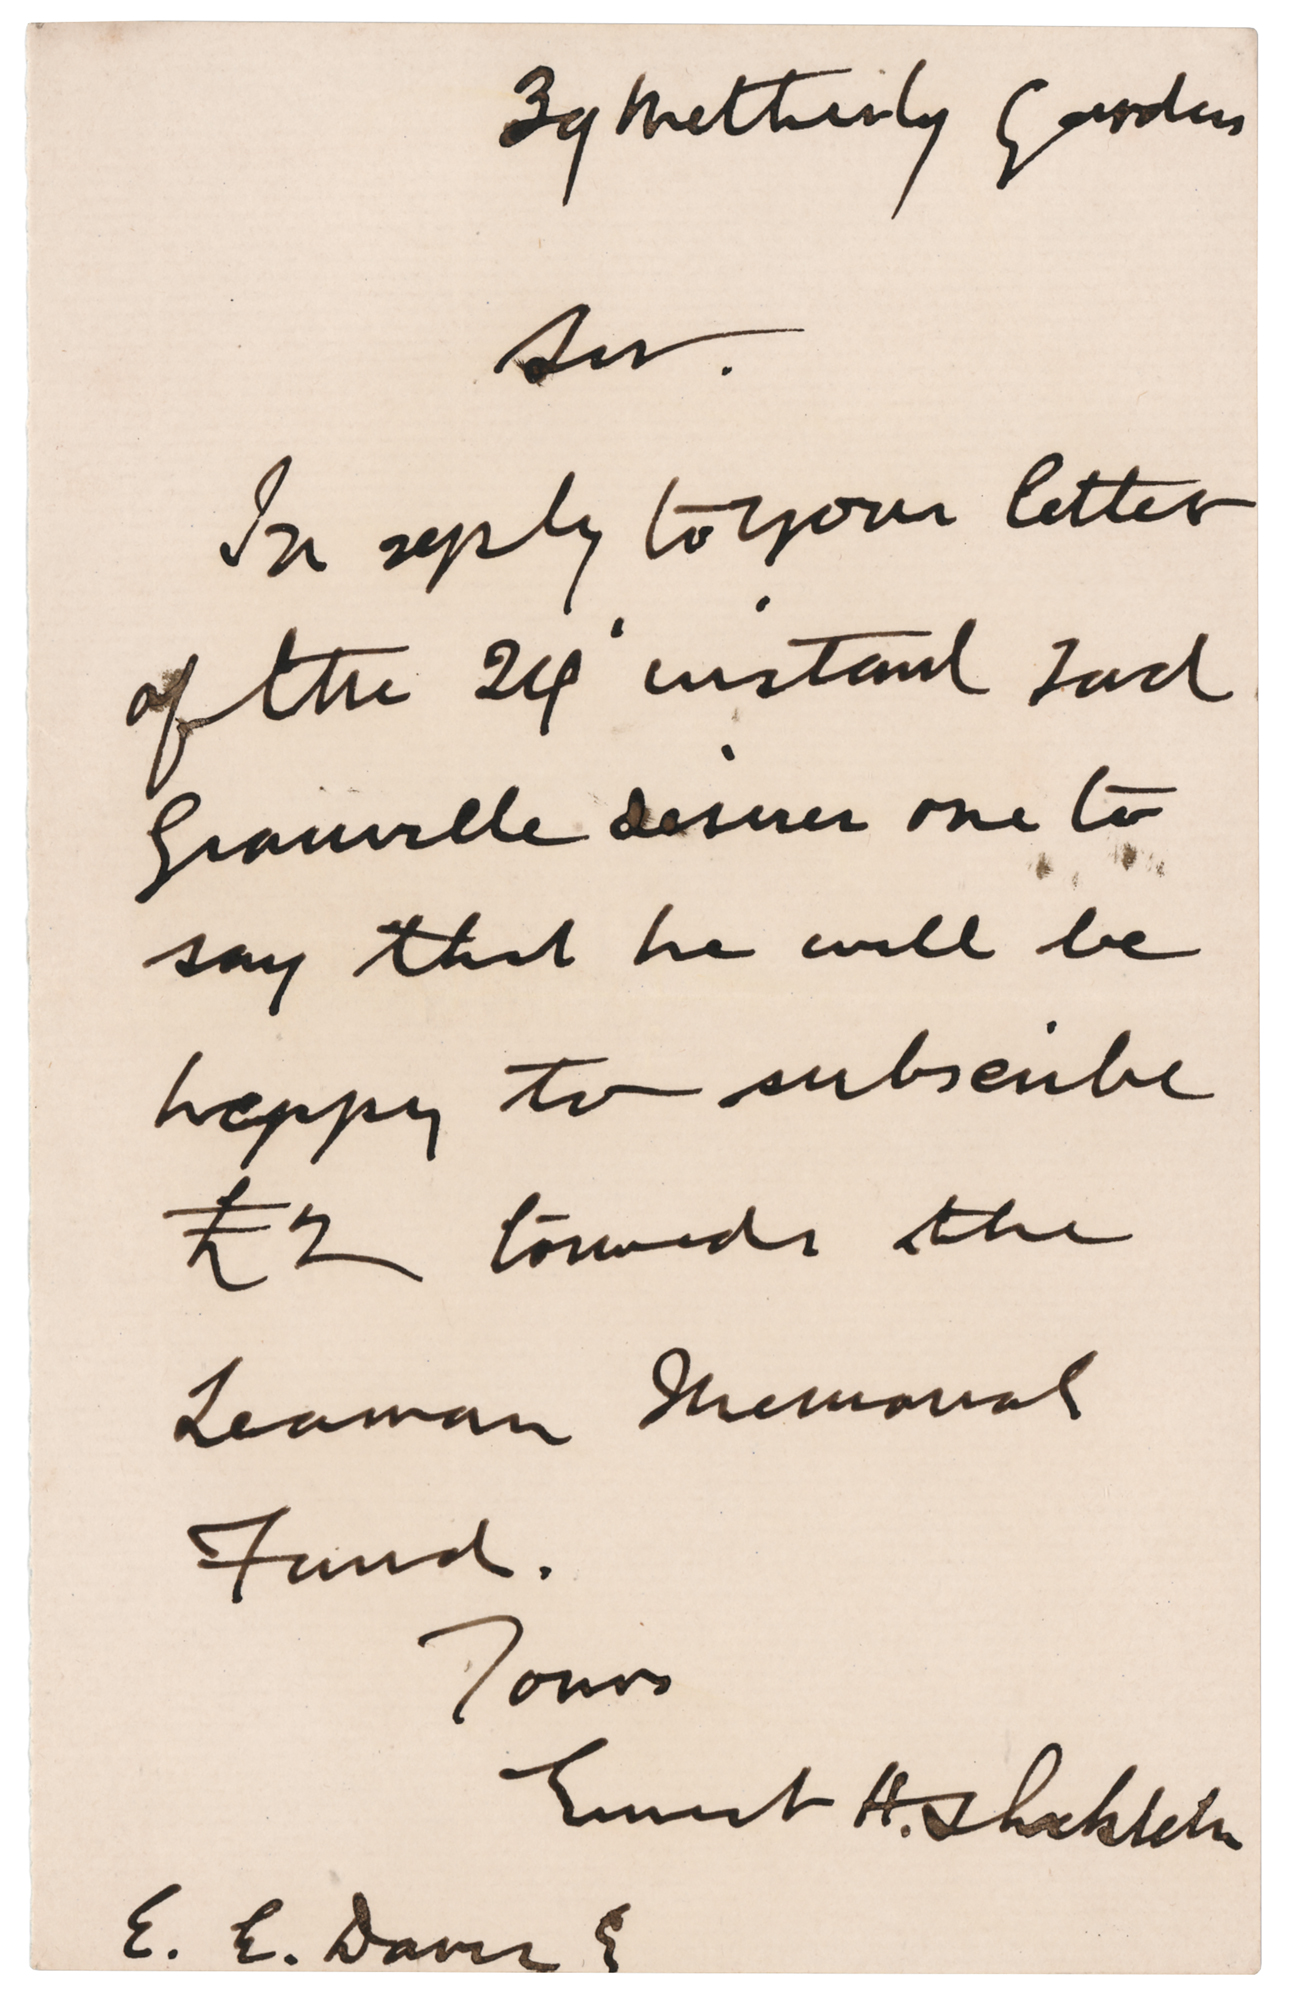 39 Netherby Gardens
Sir.
In reply to your letter
of the 24' instant Lord
Granville desires me to
say that he will be
happy to subscribe
£2 towards the
Leaman Memorial
Fund.
Yours
Ernest H. Shackleton
E. E. Davis E